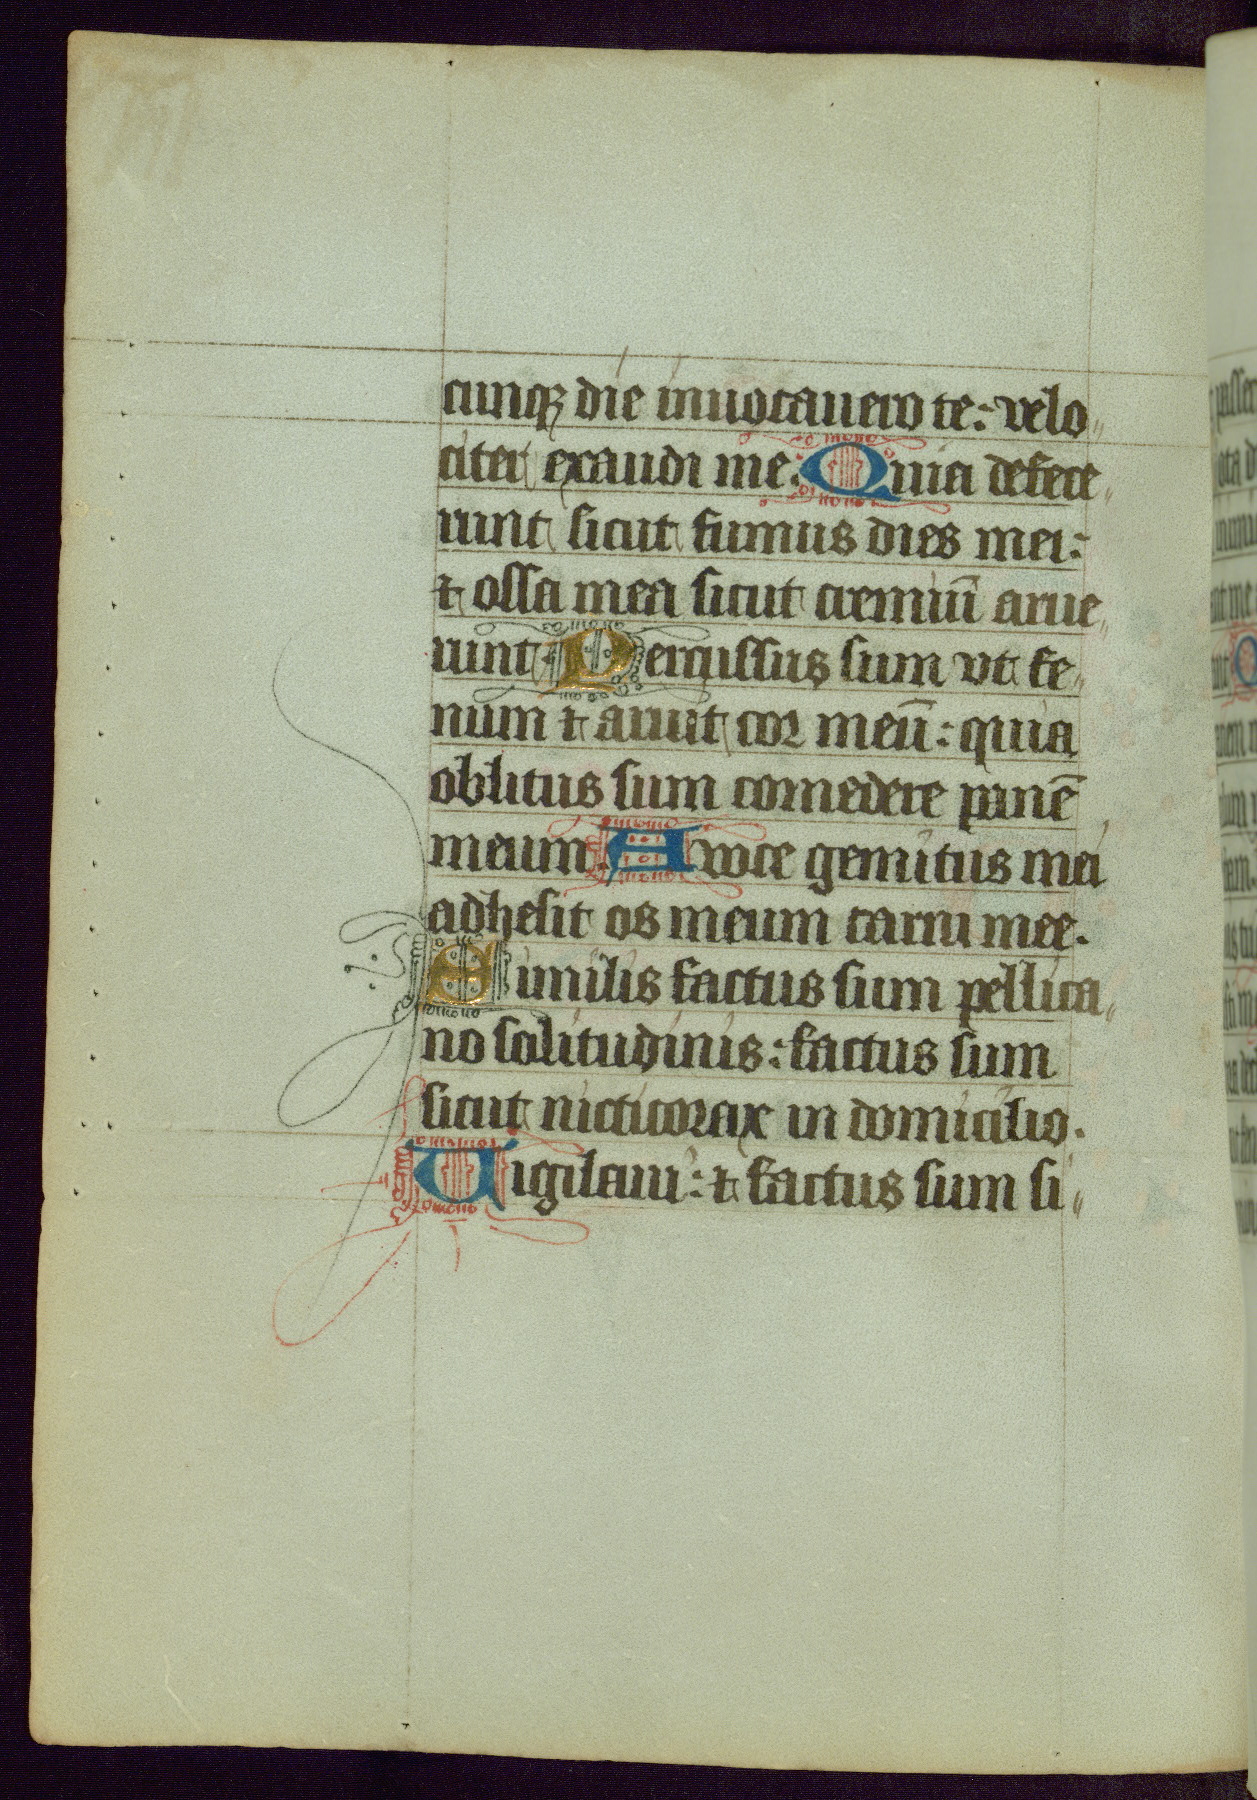 cunqꝫ die inuocauero te: velo„
citer exaudi me. Quia defece„
runt sicut fumus dies mei:
⁊ ossa mea sicut cremiū arue„
runt. Percussus sum vt fe„
num ⁊ aruit cor meū: quia
oblitus sum comedere panē
meum. A voce gemitus mei
adhesit os meum carni mee.
Similis factus sum pellica„
no solitudinis: factus sum
sicut nicticorax in domicilio.
Uigilaui: ⁊ factus sum si„